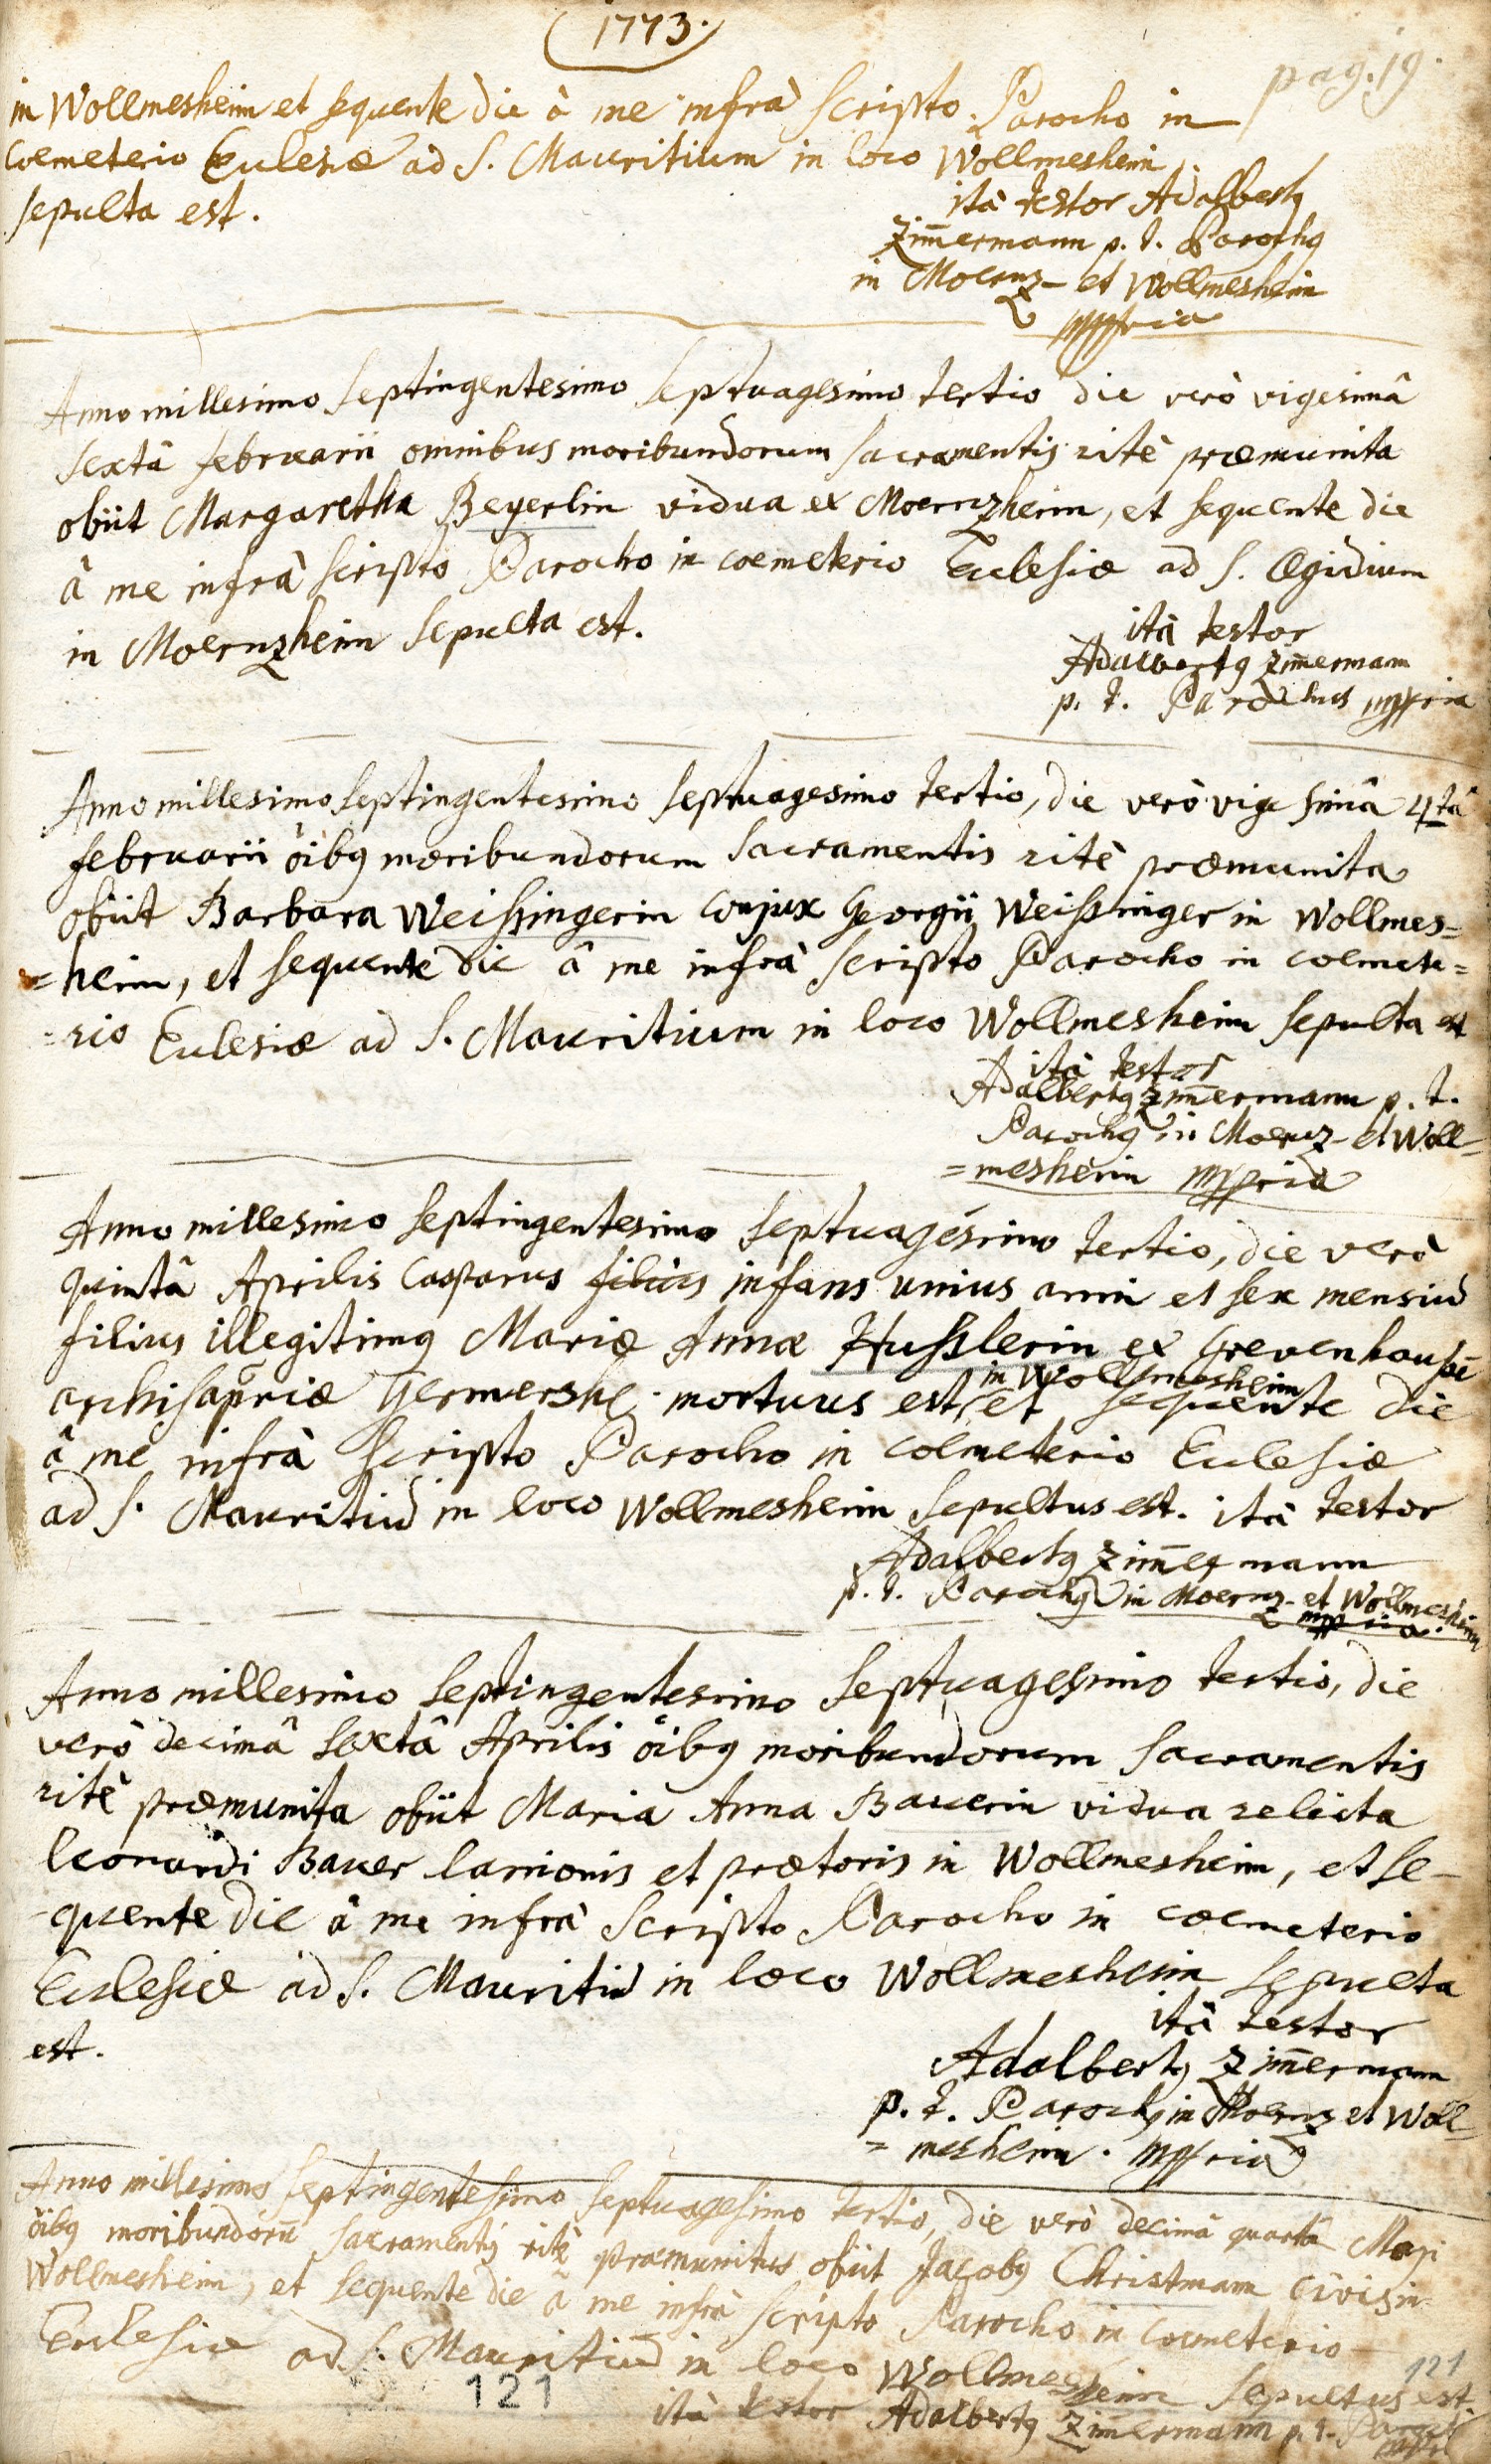 1773.
pag. 19.
in Wollmesheim et sequente die à me infrà scripto Parocho in
Coemeterio Eclesiæ ad S. Mauritium in loco Wollmesheim
sepulta est.
ità testor Adalbertq
Zim̄ermann p. t. Parochq
in Moernz- et Wollmesheim
mppria
Anno millesimo septingentesimo septuagesimo tertio die verò vigesimâ
sextâ februarii omnibus moribundorum sacramentis ritè præmunita
obiit Margaretha Beyerlin vidua ex Moernzheim, et sequente die
â me infrà scripto Parocho in coemeterio Eclesiæ ad S. Ægidium
in Moernzheim sepulta est.
ità testor
Adalbertq Zim̄ermann
p. t. Parochus mppria
Anno millesimo septingentesimo septuagesimo tertio, die verò vigesimâ 4tâ
februarii õibq moribundorum sacramentis ritè præmunita
obiit Barbara Weissingerin conjux Georgii Weissinger in Wollmes=
=heim, et sequente die â me infrà scripto Parocho in coemete=
=rio Eclesiæ ad S. Mauritium in loco Wollmesheim sepulta est
ità testor
Adalbertq Zim̄ermann p. t.
Parochq in Moernz- et Woll=
=mesheim mppria
Anno millesimo septingentesimo septuagesimo tertio, die verò
quintâ Aprilis Casparus filius infans unius anni et sex mensiū
filius illegitimq Mariæ Annæ Husslerin ex Grevenhausē
archisap̃riæ Germershe. mortuus est in Wollmesheim et sequente die
â me infrà scripto Parocho in coemeterio Eclesiæ
ad S. Mauritiū in loco Wollmesheim sepultus est. ità testor
Adalbertq Zim̄ermann
p. t. Parochq in Moernz- et Wollmesheim
mppria.
Anno millesimo septingentesimo septuagesimo tertio, die
verò decimâ sextâ Aprilis õibq moribundorum sacramentis
ritè præmunita obiit Maria Anna Bauerin vidua relicta
leonardi Bauer lanionis et prætoris in Wollmesheim, et se-
quente die â me infrà scripto Parocho in coemeterio
Eclesiæ ad S. Mauritiū in loco Wollmesheim sepulta
est.
ità testor
Adalbertq Zim̄ermann
p. t. Parochq in Moernz et Woll=
=mesheim. mppria
Anno millesimo septingentesimo septuagesimo tertio, die verò decimâ quartâ Maji
õibq moribundorū sacramentis ritè præmunitus obiit Jacobq Christmann civis in
Wollmesheim, et sequente die â me infrà scripto Parocho in Coemeterio
Eclesiæ ad S. Mauritiū in loco Wollmesheim sepultus est
ità testor Adalbertq Zim̄ermann p. t. Parochq
121
121